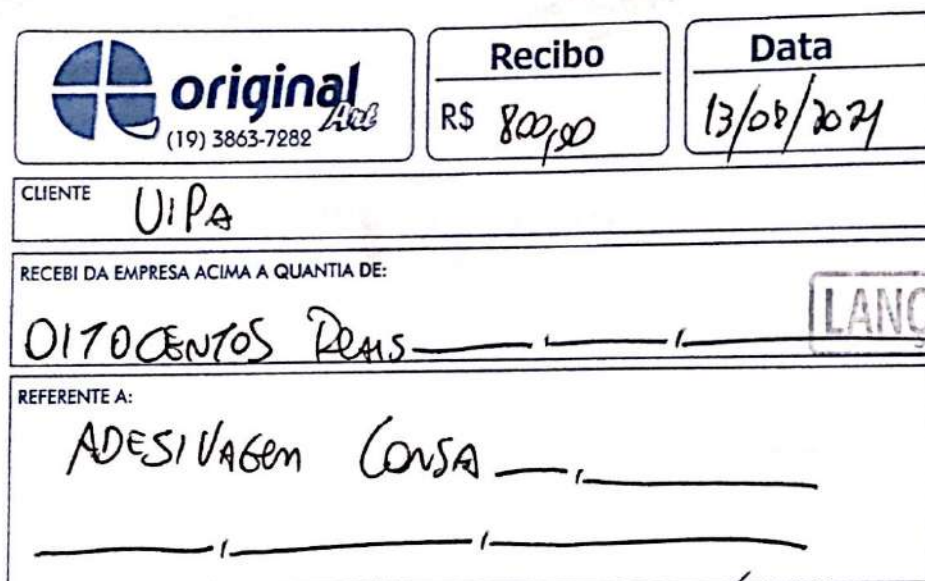 original Art
(19) 3863-7282
Recibo
R$ 800,00
Data
13/08/2021
CLIENTE UIPA
RECEBI DA EMPRESA ACIMA A QUANTIA DE:
OITOCENTOS REAIS
LANÇ
REFERENTE A:
ADESIVAGEM CORSA